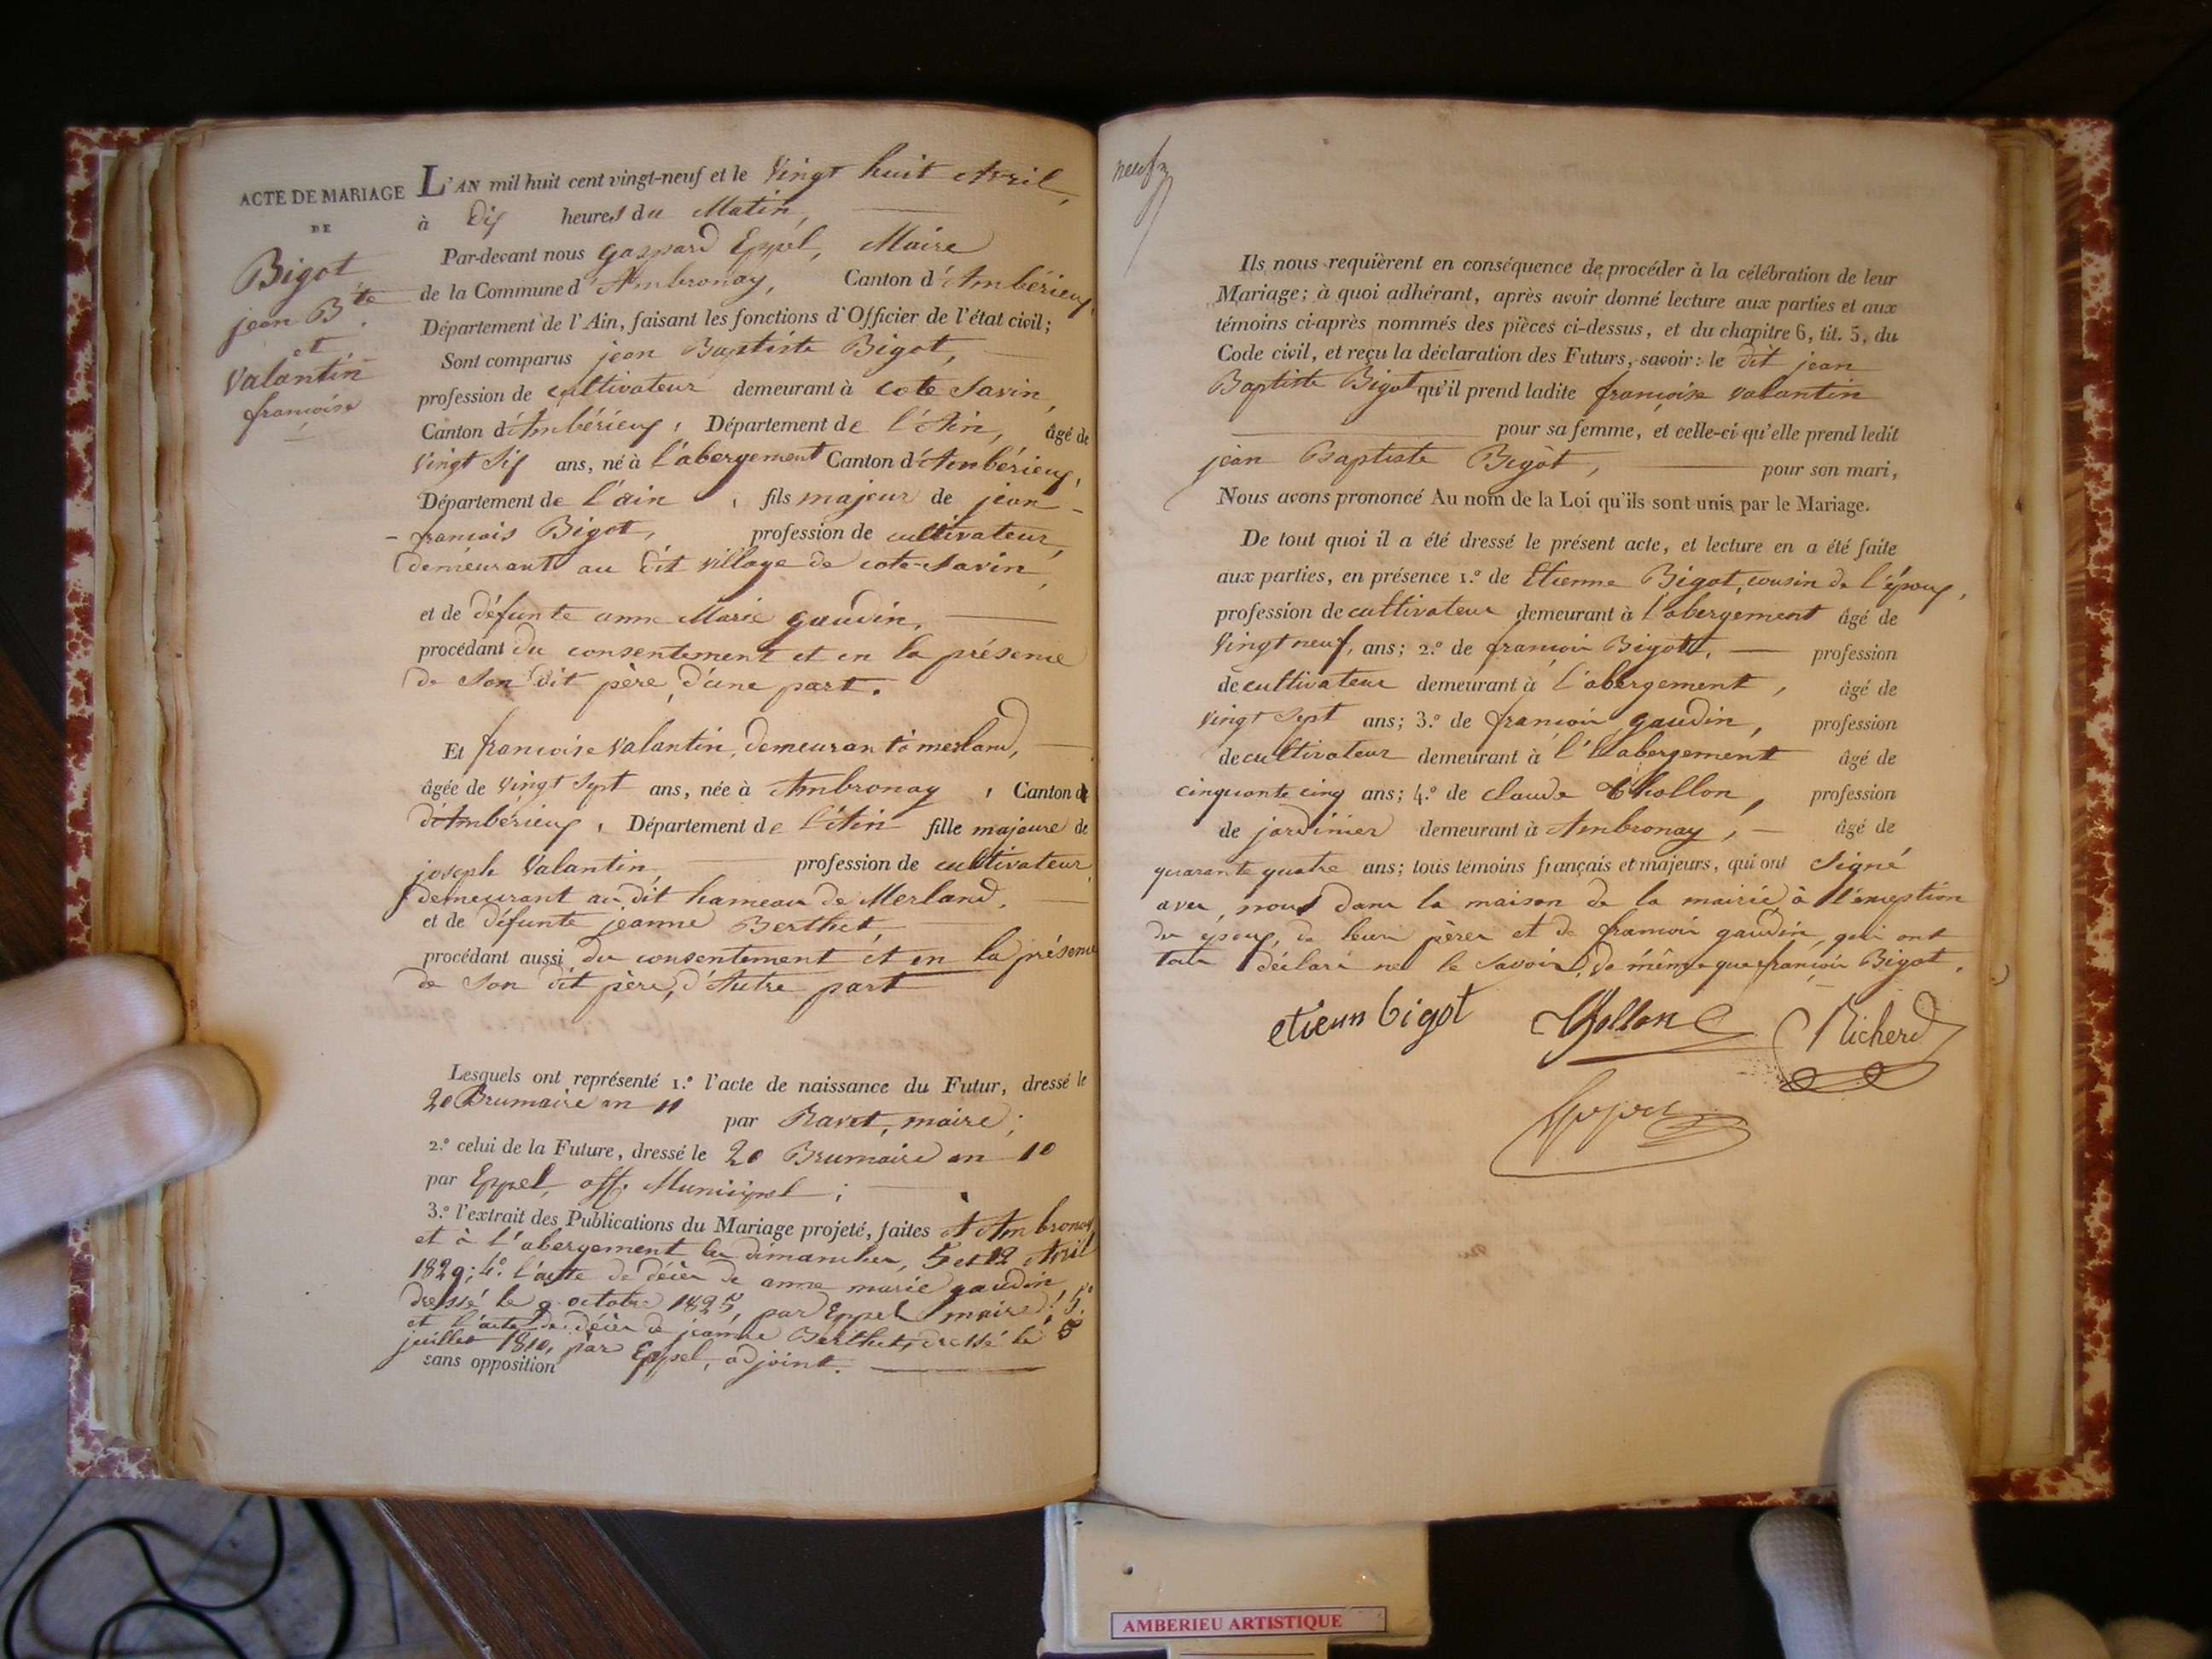 ACTE DE MARIAGE
DE
Bigot
jean Bte
et
Valantin
françoise
L'AN mil huit cent vingt-neuf et le Vingt huit Avril,
à Dix heures du Matin,
Par-devant nous gaspard Eppel, Maire
de la Commune d'Ambronay, Canton d'Ambérieux,
Département de l'Ain, faisant les fonctions d'Officier de l'état civil;
Sont comparus jean Baptiste Bigot,
profession de cultivateur demeurant à cote Savin,
Canton d'Ambérieux, Département de l'Ain, âgé de
Vingt Six ans, né à l'abergement Canton d'Ambérieux,
Département de l'ain, fils majeur de jean-
-francois Bigot, profession de cultivateur,
demeurant au dit village de cote-Savin,
et de défunte anne Marie gaudin,
procédant du consentement et en la présence
de Son dit père, d'une part.
Et francoise Valantin, demeurant à merland,
âgée de vingt Sept ans, née à Ambronay, Canton de
d'Ambérieux, Département de l'Ain fille majeure de
joseph Valantin, profession de cultivateur,
demeurant au dit hameau de Merland.
et de défunte jeanne Berthet,
procédant aussi du consentement et en la présence
de Son dit père, d'Autre part
Lesquels ont représenté 1.º l'acte de naissance du Futur, dressé le
20 Brumaire an 11 par Ravet, maire;
2.º celui de la Future, dressé le 20 Brumaire an 10
par Eppel, off. Municipal;
3.º l'extrait des Publications du Mariage projeté, faites A Ambronay
et à l'abergement les dimanches, 5 et 12 Avril
1829; 4.º l'acte de décès de anne marie gaudin,
dressé le 9 octobre 1825, par Eppel maire; 5.º
et l'acte de décès de jeanne Berthet, dressé le 5
juillet 1810, par Eppel, adjoint.
sans opposition
neuf
Ils nous requièrent en conséquence de procéder à la célébration de leur
Mariage; à quoi adhérant, après avoir donné lecture aux parties et aux
témoins ci-après nommés des pièces ci-dessus, et du chapitre 6, tit. 5, du
Code civil, et reçu la déclaration des Futurs, savoir: le dit jean
Baptiste Bigot qu'il prend ladite françoise valantin
pour sa femme, et celle-ci qu'elle prend ledit
jean Baptiste Bigot, pour son mari,
Nous avons prononcé Au nom de la Loi qu'ils sont unis par le Mariage.
De tout quoi il a été dressé le présent acte, et lecture en a été faite
aux parties, en présence 1.º de Etienne Bigot, cousin de l'époux,
profession de cultivateur demeurant à l'abergement âgé de
Vingt neuf, ans; 2.º de françois Bigot, profession
de cultivateur demeurant à l'abergement, âgé de
vingt Sept ans; 3.º de françois gaudin, profession
de cultivateur demeurant à l'abergement âgé de
cinquante cinq ans; 4.º de claude Chollon, profession
de jardinier demeurant à Ambronay, âgé de
quarante quatre ans; tous témoins français et majeurs, qui ont Signé
avec nous dans la maison de la mairie, à l'exception
des époux, de leurs pères et de françois gaudin qui ont
tous déclaré ne le Savoir, de même que françois Bigot.
etienn bigot Chollon Richerd
Eppel
AMBERIEU ARTISTIQUE